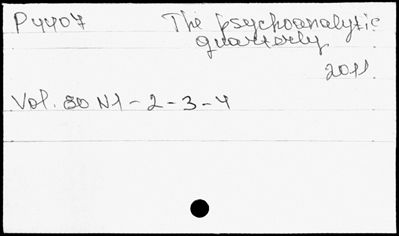 P4407 The psychoanalytic
quarterly
2011.
Vol. 80 N1 - 2 - 3 - 4